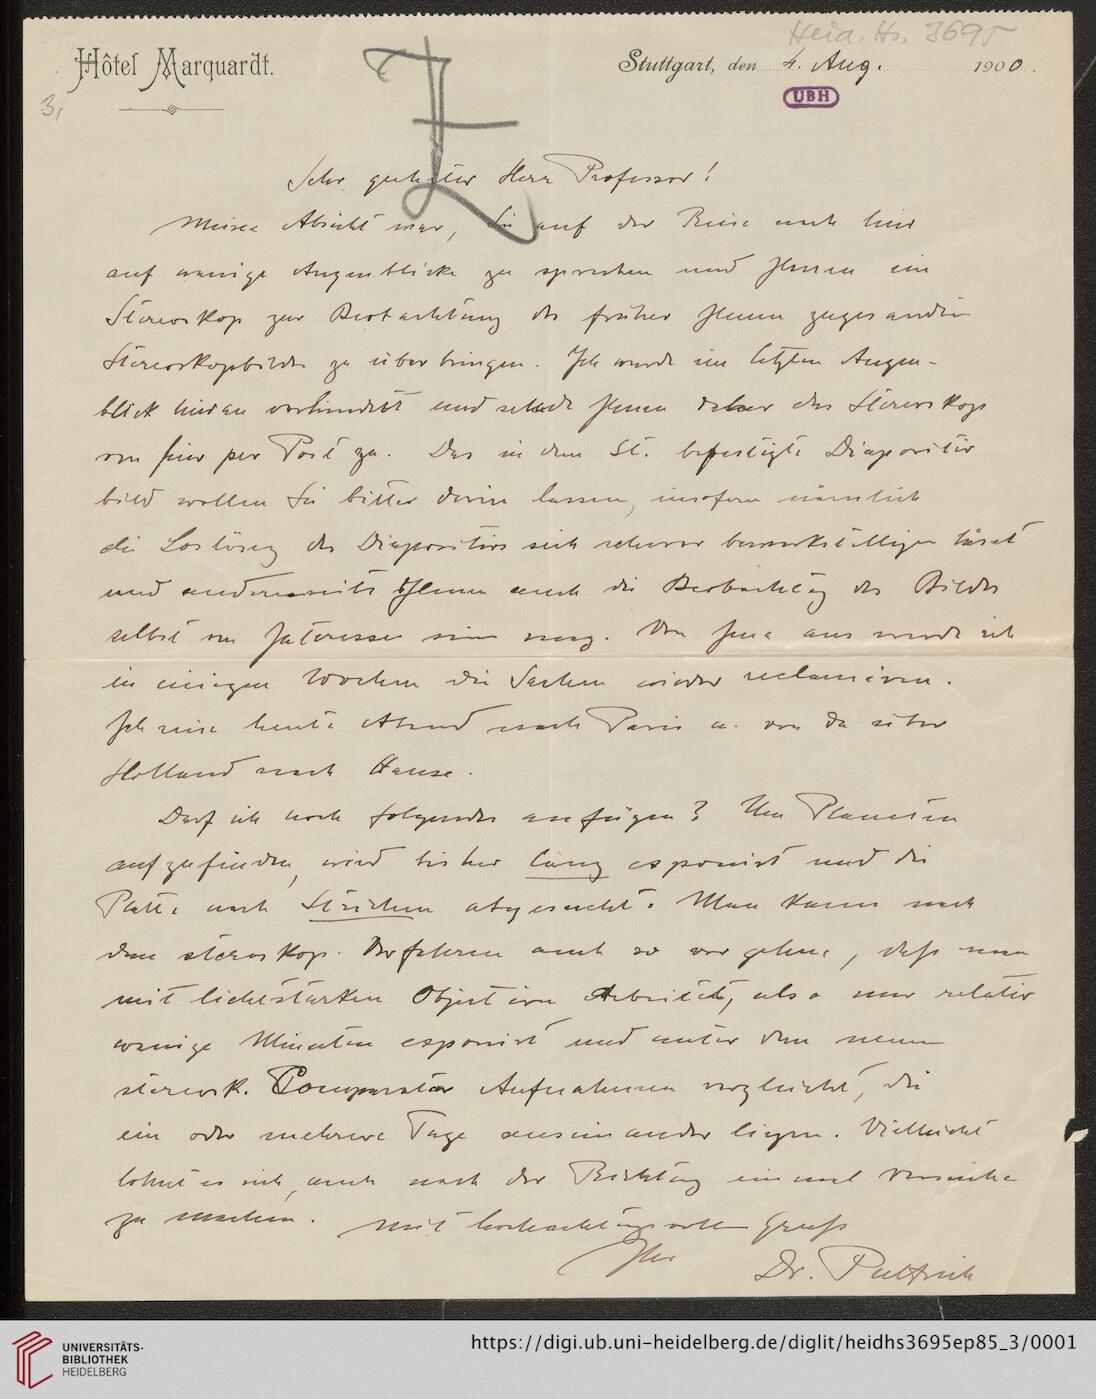 Heid. Hs. 3695
Hôtel Marquardt.
Stuttgart, den 4. Aug. 1900.
3,
UBH
Sehr geehrter Herr Professor!
Meine Absicht war, Sie auf der Reise nach hier
auf wenige Augenblicke zu sprechen und Ihnen ein
Stereoskop zur Beobachtung der früher Ihnen zugesandten
Stereoskopbilder zu überbringen. Ich wurde im letzten Augen-
blick hieran verhindert und sende Ihnen daher das Stereoskop
von hier per Post zu. Das in dem St. befestigte Diapositiv
bild wollen Sie bitte darin lassen, insofern nämlich
die Loslösung des Diapositivs sich schwer bewerkstelligen lässt
und andererseits Ihnen auch die Beobachtung des Bildes
selbst von Interesse sein mag. Von Jena aus werde ich
in einigen Wochen die Sachen wieder reclamiren.
Ich reise heute Abend nach Paris u. von da über
Holland nach Hause.
Darf ich noch folgendes anfügen? Um Planeten
aufzufinden, wird bisher lang exponirt und die
Platte nach Strichen abgesucht. Man kann nach
dem stereoskop. Verfahren auch so vorgehen, daß man
mit lichtstarken Objectiven arbeitet, also nur relativ
wenige Minuten exponirt und unter dem neuen
stereosk. Comparator Aufnahmen vergleicht, die
ein oder mehrere Tage auseinander liegen. Vielleicht
lohnt es sich, auch nach der Richtung einmal Versuche
zu machen. Mit hochachtungsvollem Gruß
Ihr
Dr. Pulfrich
UNIVERSITÄTS-
BIBLIOTHEK
HEIDELBERG
https://digi.ub.uni-heidelberg.de/diglit/heidhs3695ep85_3/0001